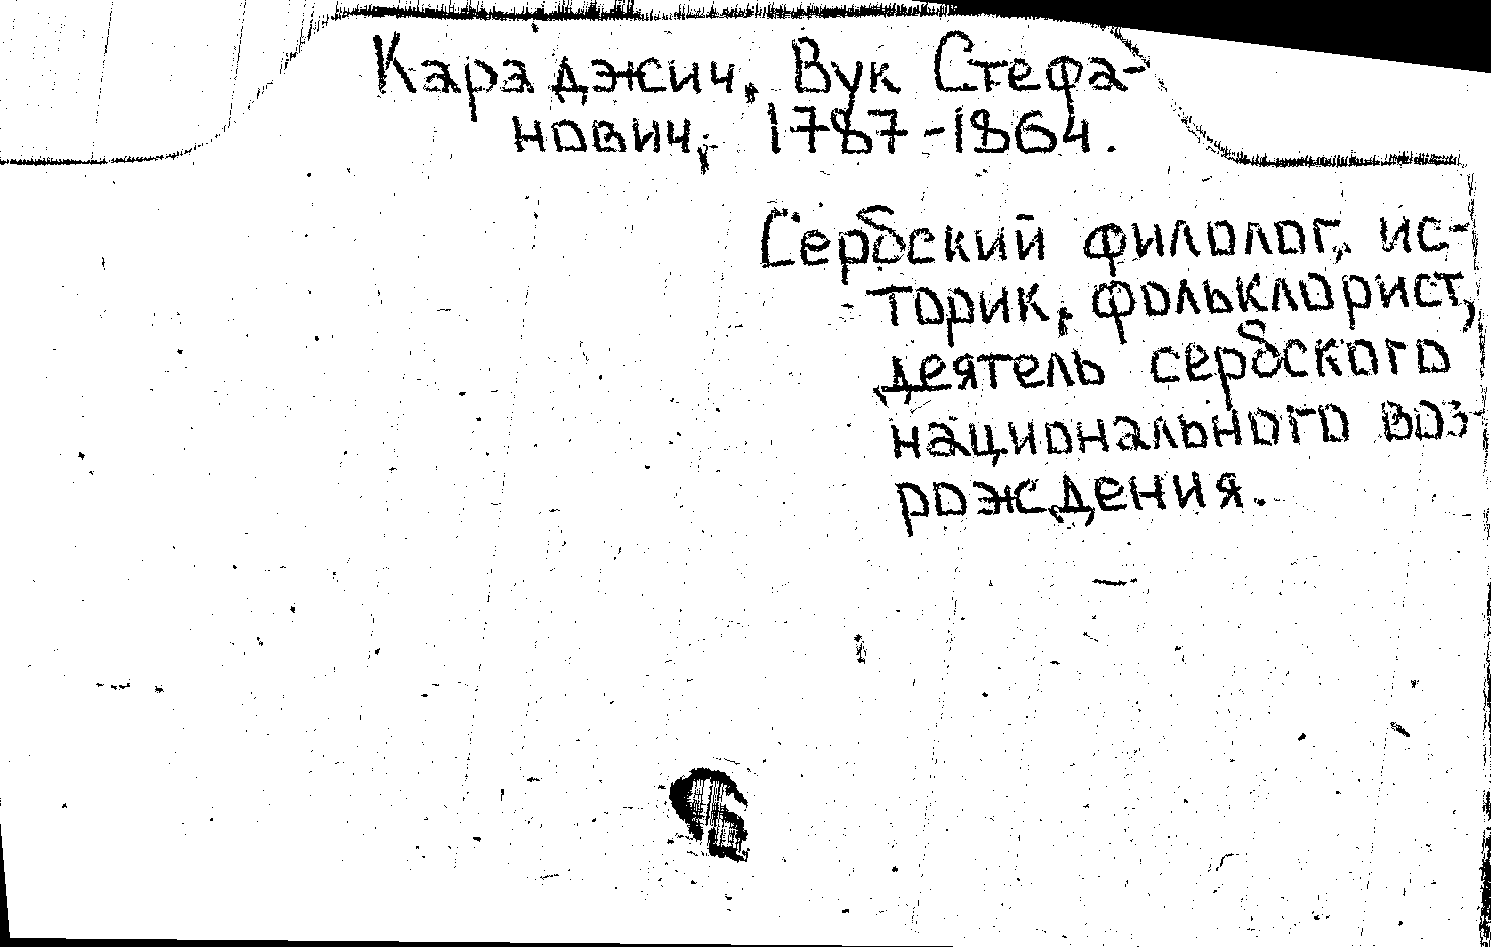 Караджич, Вук Стефа-
нович, 1787-1864.
Сербский филолог, ис-
торик, фольклорист,
деятель сербского
национального воз-
рождения.